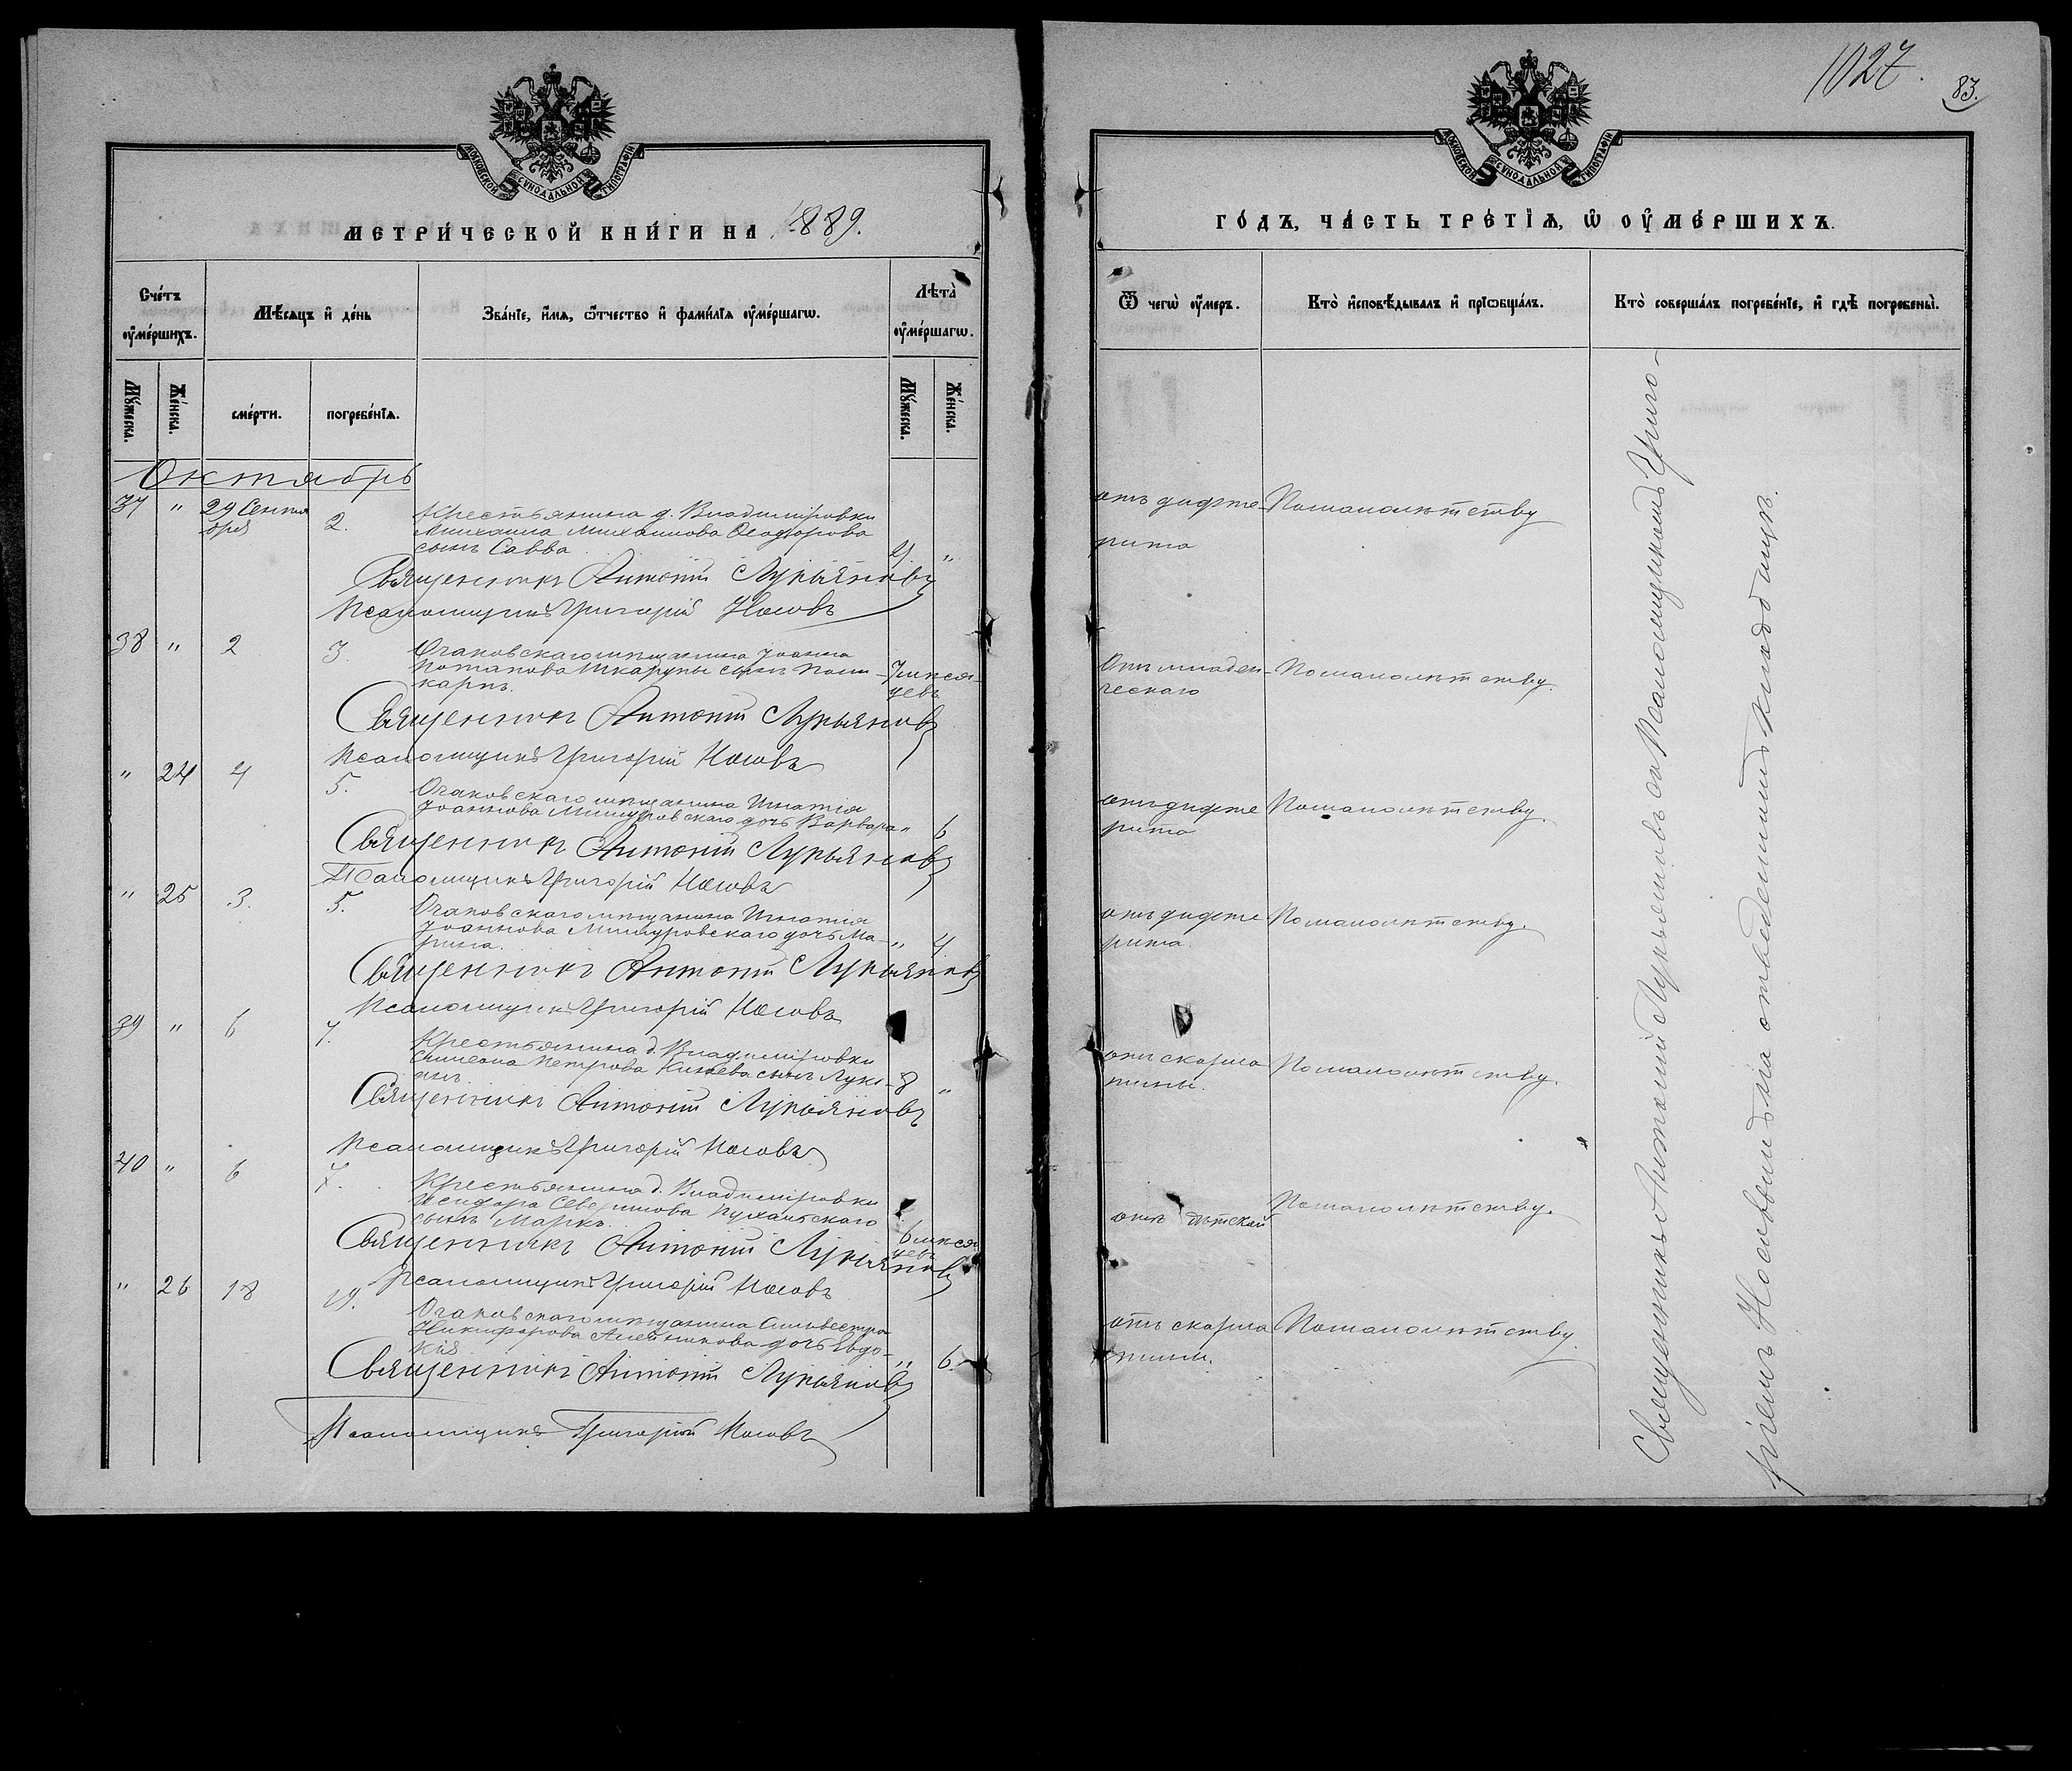 МОСКОВСКОЙ СѴНОДАЛЬНОЙ ТИПОГРАФІИ
МЕТРИ́ЧЕСКОЙ КНИ́ГИ НА 1889.
Сче́тъ ᲂу҆ме́ршихъ.
Мѣ́сѧцъ и҆ де́нь
Зва́нїе, и҆́мѧ, ѻ҆́тчество и҆ фами́лїѧ ᲂу҆ме́ршагѡ.
Лѣта̀ ᲂу҆ме́ршагѡ.
Мꙋ́жеска.
Же́нска.
сме́рти.
погребе́нїѧ.
Мꙋ́жеска.
Же́нска.
Октябрь
37 " 29 Сентя
бря
2.
Крестьянина д. Владиміровки
Михаила Михаилова Ѳеодорова
сынъ Савва
4 "
Священникъ Антоній Лукьяновъ
Псаломщикъ Григорій Носовъ
38 " 2 3.
Очаковскаго мѣщанина Іоанна
Потапова Шкарупы сынъ Поли-
карпъ.
7 мѣся-
цевъ
Священникъ Антоній Лукьяновъ
Псаломщикъ Григорій Носовъ
" 24 4 5.
Очаковскаго мѣщанина Игнатія
Іоаннова Мишуровскаго дочь Варвара
" 6
Священникъ Антоній Лукьяновъ
Псаломщикъ Григорій Носовъ
" 25 3. 5.
Очаковскаго мѣщанина Игнатія
Іоаннова Мишуровскаго дочь Ма-
рина.
" 4
Священникъ Антоній Лукьяновъ
Псаломщикъ Григорій Носовъ
39 " 6 7.
Крестьянина д. Владиміровки
Симеона Петрова сынъ Луки-
янъ.
8 "
Священникъ Антоній Лукьяновъ
Псаломщикъ Григорій Носовъ
40 " 6 7.
Крестьянина д. Владиміровки
Исидора Северинова
сынъ Маркъ.
6 мѣся
цевъ
Священникъ Антоній Лукьяновъ
Псаломщикъ Григорій Носовъ
" 26 18 19.
Очаковскаго мѣщанина Сильвестра
Никифорова Алейникова дочь Евдо-
кія
" 6.
Священникъ Антоній Лукьяновъ
Псаломщикъ Григорій Носовъ
1027.
83.
МОСКОВСКОЙ СѴНОДАЛЬНОЙ ТИПОГРАФІИ
ГО́ДЪ, ЧА́СТЬ ТРЕ́ТЇѦ, Ѡ҆ ОУ҆МЕ́РШИХЪ.
Ѿ чегѡ̀ ᲂу҆́меръ.
Кто̀ и҆сповѣ́дывалъ и҆ прїѡбща́лъ.
Кто̀ соверша́лъ погребе́нїе, и҆ гдѣ̀ погребены̀.
отъ дифте-
рита
По малолѣтству
Отъ младен-
ческаго
По малолѣтству.
отъ дифте
рита
По малолѣтству.
отъ дифте
рита.
По малолѣтству.
отъ скарла
тины.
По малолѣтству.
отъ дѣтской
По малолѣтству.
отъ скарла
тины.
По малолѣтству.
Священникъ Антоній Лукьяновъ съ Псаломщикомъ Григо-
ріемъ Носовымъ на отведенномъ кладбищѣ.